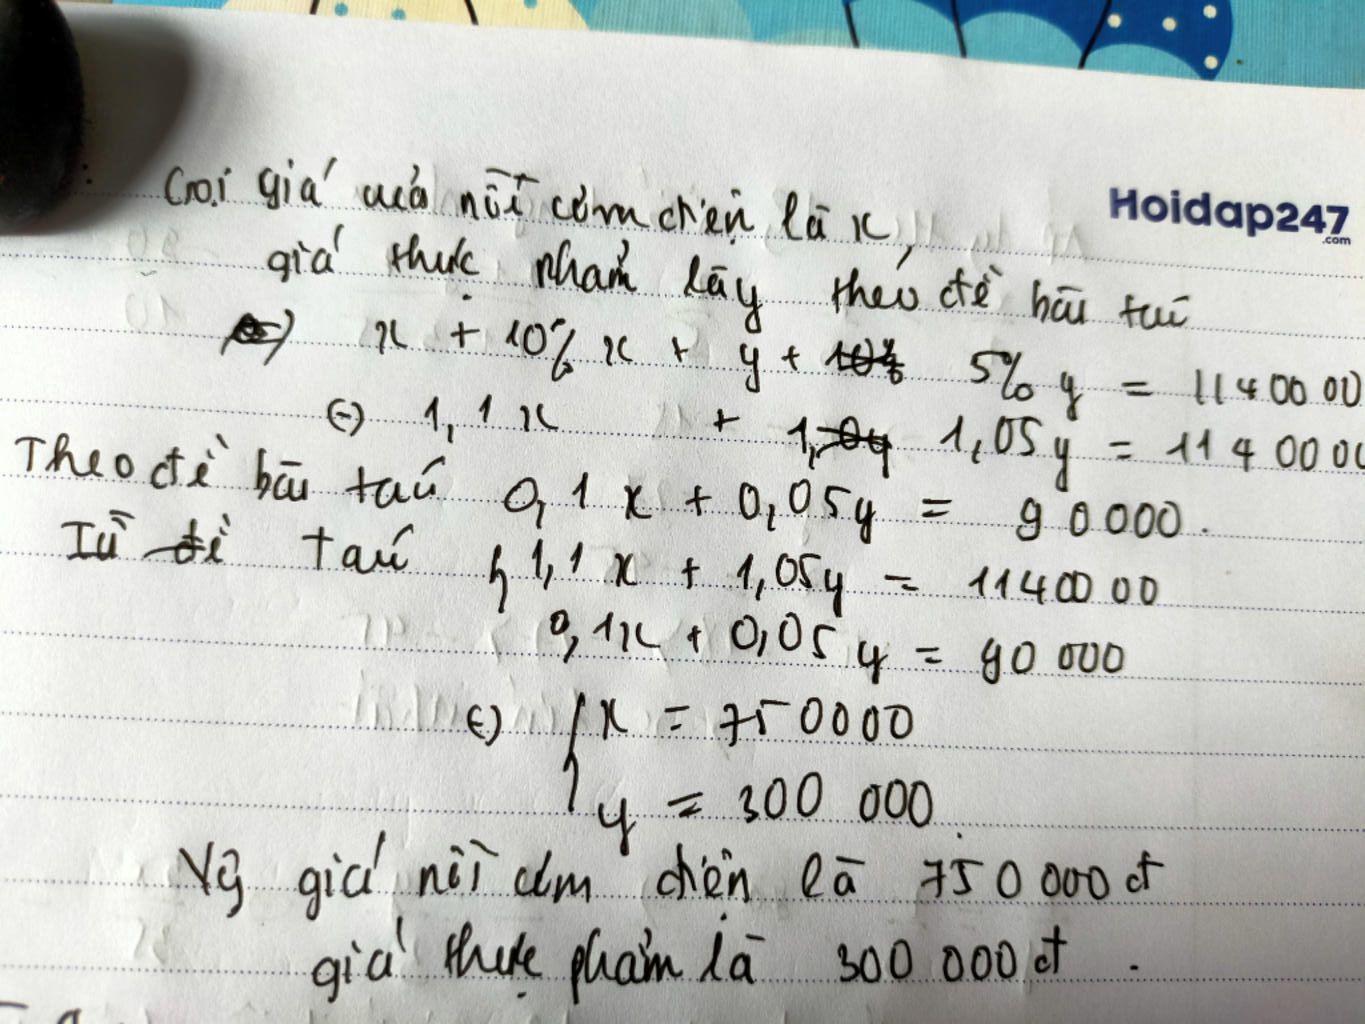 Gọi giá của nồi cơm điện là x,
Hoidap247
.com
giá thực phẩm là y theo đề bài ta có
x + 10% x + y + 5% y = 1140000
(-) 1,1x + 1,05y = 1140000
Theo đề bài ta có 0,1x + 0,05y = 90000.
Từ đề ta có { 1,1x + 1,05y = 1140000
0,1x + 0,05y = 90 000
(-) { x = 750000
y = 300 000
Vậy giá nồi cơm điện là 750 000 đ
giá thực phẩm là 300 000 đ.